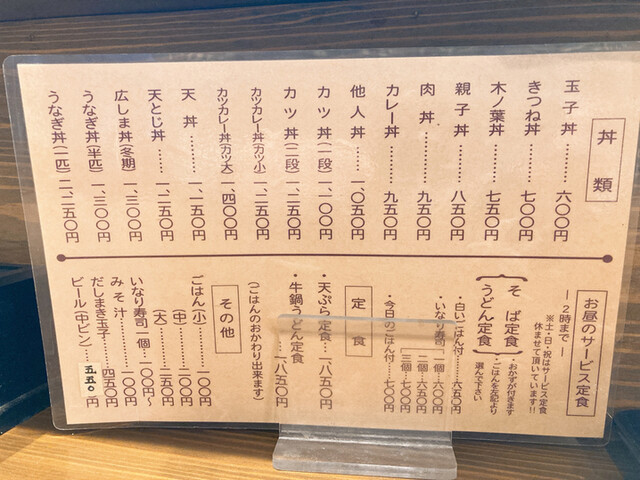 丼類
玉子丼………六〇〇円
きつね丼………七〇〇円
木ノ葉丼………七五〇円
親子丼………八五〇円
肉丼………九五〇円
カレー丼………九五〇円
他人丼……一、〇五〇円
カツ丼(一段)一、一〇〇円
カツ丼(二段)一、二五〇円
カツカレー丼(カツ小)一、二五〇円
カツカレー丼(カツ大)一、四〇〇円
天丼………一、一五〇円
天とじ丼……一、二五〇円
広しま丼(冬期)一、三〇〇円
うなぎ丼(半匹)一、三〇〇円
うなぎ丼(一匹)二、二五〇円
お昼のサービス定食
―2時まで―
※土・日・祝はサービス定食
休ませて頂いています!!
そば定食
うどん定食
・おかずが付きます
・ごはんを左記より
選んで下さい
・白いごはん付…六五〇円
・いなり寿司一個…六〇〇円
二個…六五〇円
三個…七〇〇円
・今日のごはん付…七〇〇円
定食
・天ぷら定食…一、八五〇円
・牛鍋うどん定食
一、八五〇円
(ごはんのおかわり出来ます)
その他
ごはん(小)………一〇〇円
(中)………一五〇円
(大)………二〇〇円
いなり寿司一個…一〇〇円〜
みそ汁………一〇〇円
だしまき玉子……四五〇円
ビール(中ビン)……五五〇円